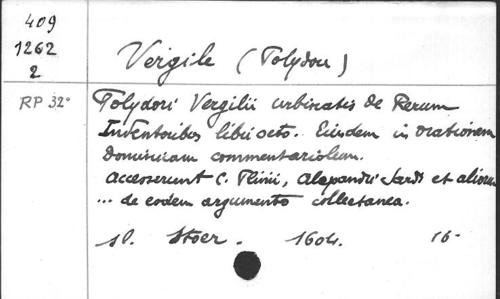 409
1262
2
Vergile (Polydore)
RP 32°
Polydori Vergilii urbinatis de Rerum
Inventoribus libri octo. Eiusdem in orationem
dominicam commentariolum.
Accesserunt C. Plinii, Alexandri Sardi et aliorum
... de eodem argumento collectanea.
sl. Stoer. 1604. 16-